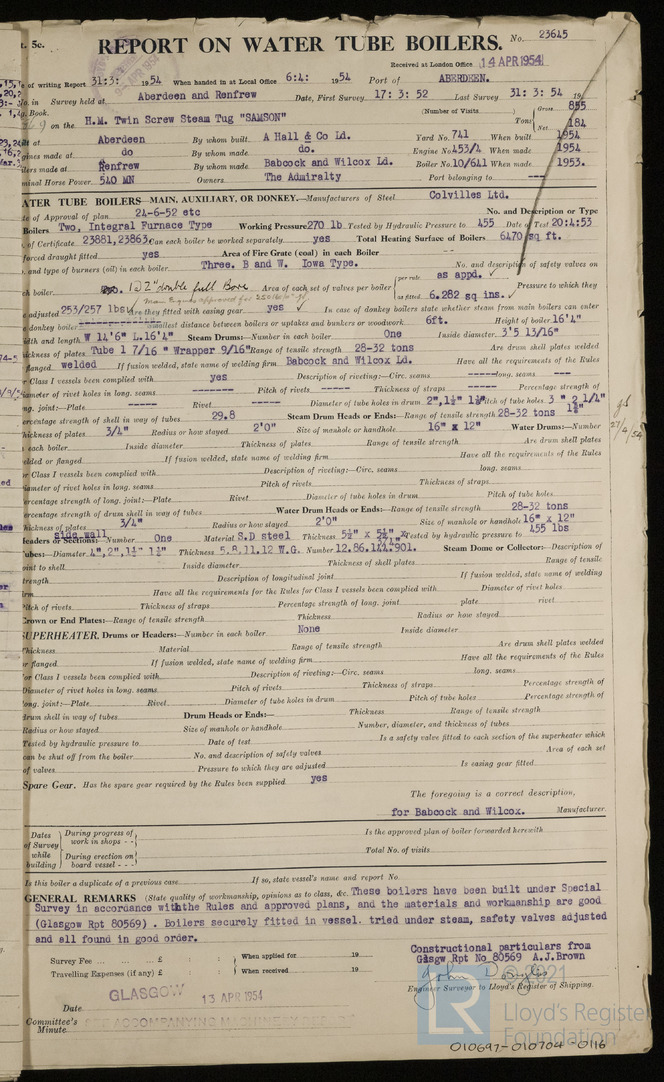 t. 5c.
REPORT ON WATER TUBE BOILERS.
No. 23645
Received at London Office 14 APR 1954
e of writing Report 31:3: 1954 When handed in at Local Office 6:4: 1954 Port of ABERDEEN.
No. in Survey held at Aberdeen and Renfrew Date, First Survey 17: 3: 52 Last Survey 31: 3: 54 19
g. Book. (Number of Visits) Gross 855
on the H.M. Twin Screw Steam Tug "SAMSON" Tons Net 184
ilt at Aberdeen By whom built A Hall & Co Ld. Yard No. 741 When built 1954
gines made at do By whom made do. Engine No 453/4 When made 1954
ilers made at Renfrew By whom made Babcock and Wilcox Ld. Boiler No. 10/641 When made 1953.
minal Horse Power 540 MN Owners The Admiralty Port belonging to ---
ATER TUBE BOILERS—MAIN, AUXILIARY, OR DONKEY.—Manufacturers of Steel Colvilles Ltd.
te of Approval of plan 24-6-52 etc No. and Description or Type
Boilers Two, Integral Furnace Type Working Pressure 270 lb Tested by Hydraulic Pressure to 455 Date of Test 20:4:53
. of Certificate 23881,23863. Can each boiler be worked separately yes Total Heating Surface of Boilers 6470 sq ft.
forced draught fitted yes Area of Fire Grate (coal) in each Boiler
. and type of burners (oil) in each boiler Three. B and W. Iowa Type. No. and description of safety valves on
ch boiler 1 D 2" double full Bore Area of each set of valves per boiler per rule as appd. as fitted 6.282 sq ins. Pressure to which they
e adjusted 253/257 lbs Are they fitted with easing gear yes In case of donkey boilers state whether steam from main boilers can enter
e donkey boiler ---------- Smallest distance between boilers or uptakes and bunkers or woodwork 6ft. Height of boiler 16'4"
idth and length W 14'6" L.16'4" Steam Drums:—Number in each boiler One Inside diameter 3'5 13/16"
hickness of plates Tube 1 7/16 " Wrapper 9/16" Range of tensile strength 28-32 tons Are drum shell plates welded
flanged welded If fusion welded, state name of welding firm Babcock and Wilcox Ld. Have all the requirements of the Rules
r Class I vessels been complied with yes Description of riveting:—Circ. seams ----- long. seams ---
iameter of rivet holes in long. seams ------- Pitch of rivets ----- Thickness of straps ------- Percentage strength of
ng. joint:—Plate ----- Rivet ----- Diameter of tube holes in drum 2",1½" 1¼" Pitch of tube holes 3 " 2 1/4"
ercentage strength of shell in way of tubes 29.8 Steam Drum Heads or Ends:—Range of tensile strength 28-32 tons
hickness of plates 3/4" Radius or how stayed 2'0" Size of manhole or handhole 16" x 12" Water Drums:—Number
each boiler Inside diameter Thickness of plates Range of tensile strength Are drum shell plates
elded or flanged If fusion welded, state name of welding firm Have all the requirements of the Rules
r Class I vessels been complied with Description of riveting:—Circ. seams long. seams
iameter of rivet holes in long. seams Pitch of rivets Thickness of straps
ercentage strength of long. joint:—Plate Rivet Diameter of tube holes in drum Pitch of tube holes
ercentage strength of drum shell in way of tubes Water Drum Heads or Ends:—Range of tensile strength 28-32 tons
hickness of plates 3/4" Radius or how stayed 2'0" Size of manhole or handhole 16" x 12"
eaders or Sections:—Number side wall One Material S.D steel Thickness 5½" x 5½" x Tested by hydraulic pressure to 455 lbs
ubes:—Diameter 4",2",1½" 1¼" Thickness 5.8.11.12 W.G. Number 12.86.144.901. Steam Dome or Collector:—Description of
oint to shell Inside diameter Thickness of shell plates Range of tensile
trength Description of longitudinal joint If fusion welded, state name of welding
irm Have all the requirements for the Rules for Class I vessels been complied with Diameter of rivet holes
Pitch of rivets Thickness of straps Percentage strength of long. joint plate rivet
Crown or End Plates:—Range of tensile strength Thickness Radius or how stayed
SUPERHEATER, Drums or Headers:—Number in each boiler None Inside diameter
Thickness Material Range of tensile strength Are drum shell plates welded
r flanged If fusion welded, state name of welding firm Have all the requirements of the Rules
or Class I vessels been complied with Description of riveting:—Circ. seams long. seams
Diameter of rivet holes in long. seams Pitch of rivets Thickness of straps Percentage strength of
long. joint:—Plate Rivet Diameter of tube holes in drum Pitch of tube holes Percentage strength of
drum shell in way of tubes Drum Heads or Ends:— Thickness Range of tensile strength
Radius or how stayed Size of manhole or handhole Number, diameter, and thickness of tubes
Tested by hydraulic pressure to Date of test Is a safety valve fitted to each section of the superheater which
can be shut off from the boiler No. and description of safety valves Area of each set
of valves Pressure to which they are adjusted Is easing gear fitted
Spare Gear. Has the spare gear required by the Rules been supplied yes
The foregoing is a correct description,
for Babcock and Wilcox. Manufacturer
Dates of Survey while building During progress of work in shops - - Is the approved plan of boiler forwarded herewith
During erection on board vessel - - - Total No. of visits
Is this boiler a duplicate of a previous case If so, state vessel's name and report No.
GENERAL REMARKS (State quality of workmanship, opinions as to class, &c. These boilers have been built under Special
Survey in accordance withthe Rules and approved plans, and the materials and workmanship are good
(Glasgow Rpt 80569) . Boilers securely fitted in vessel. tried under steam, safety valves adjusted
and all found in good order.
Constructional particulars from
Glasgw Rpt No 80569 A.J.Brown
Survey Fee ... ... £ : : When applied for 19
Travelling Expenses (if any) £ : : When received 19
Engineer Surveyor to Lloyd's Register of Shipping.
GLASGOW 13 APR 1954
Date
Committee's Minute
SEE ACCOMPANYING MACHINERY REPORT
© 2021
LR Lloyd's Register Foundation
010697-010704-0116